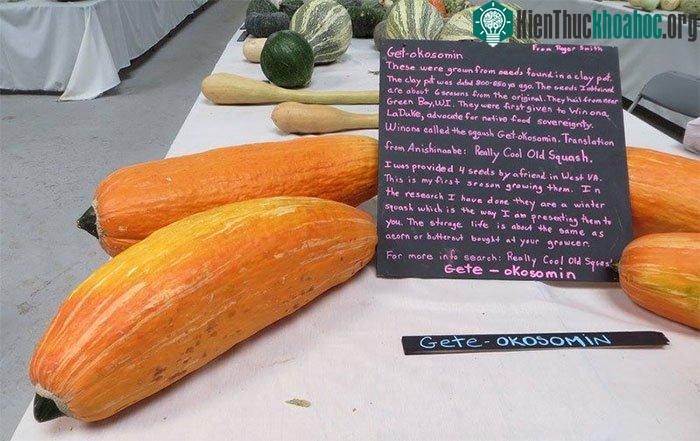 KienThuckhoahoc.org
Get-okosomin
From Roger Smith
These were grown from seeds found in a clay pot.
The clay pot was dated 800-850 yo ago. The seeds I obtained
are about 6 seasons from the original. They hail from near
Green Bay, WI. They were first given to Winona
LaDuke, advocate for native food sovereignty.
Winona called the squash Get-okosomin. Translation
from Anishinaabe: Really Cool Old Squash.
I was provided 4 seeds by a friend in West VA.
This is my first season growing them. In
the research I have done they are a winter
squash which is the way I am presenting them to
you. The storage life is about the same as
acorn or butternut bought at your grocer.
For more info search: Really Cool Old Squash
Gete - okosomin
Gete-OKOSOMIN